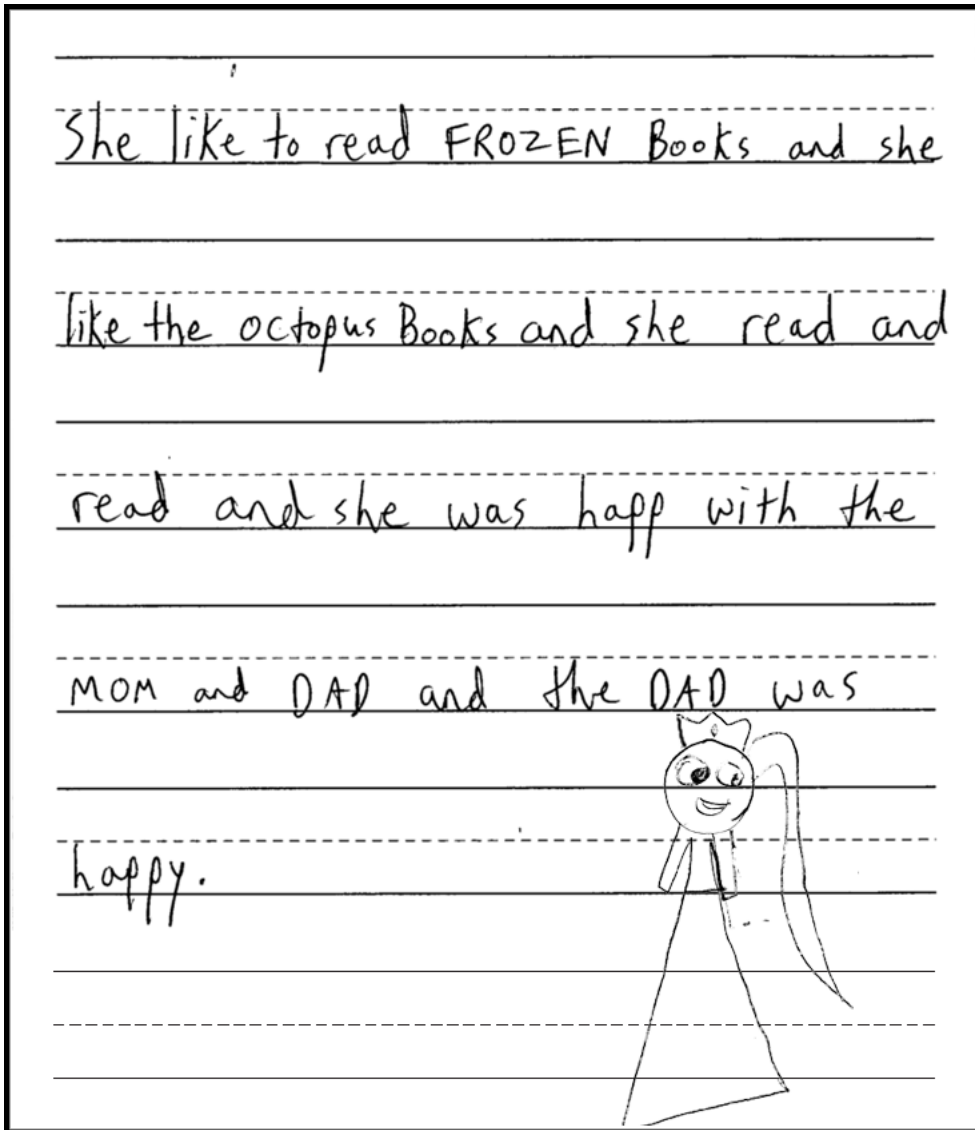 She like to read FROZEN Books and she
like the octopus Books and she read and
read and she was happ with the
MOM and DAD and the DAD was
happy.